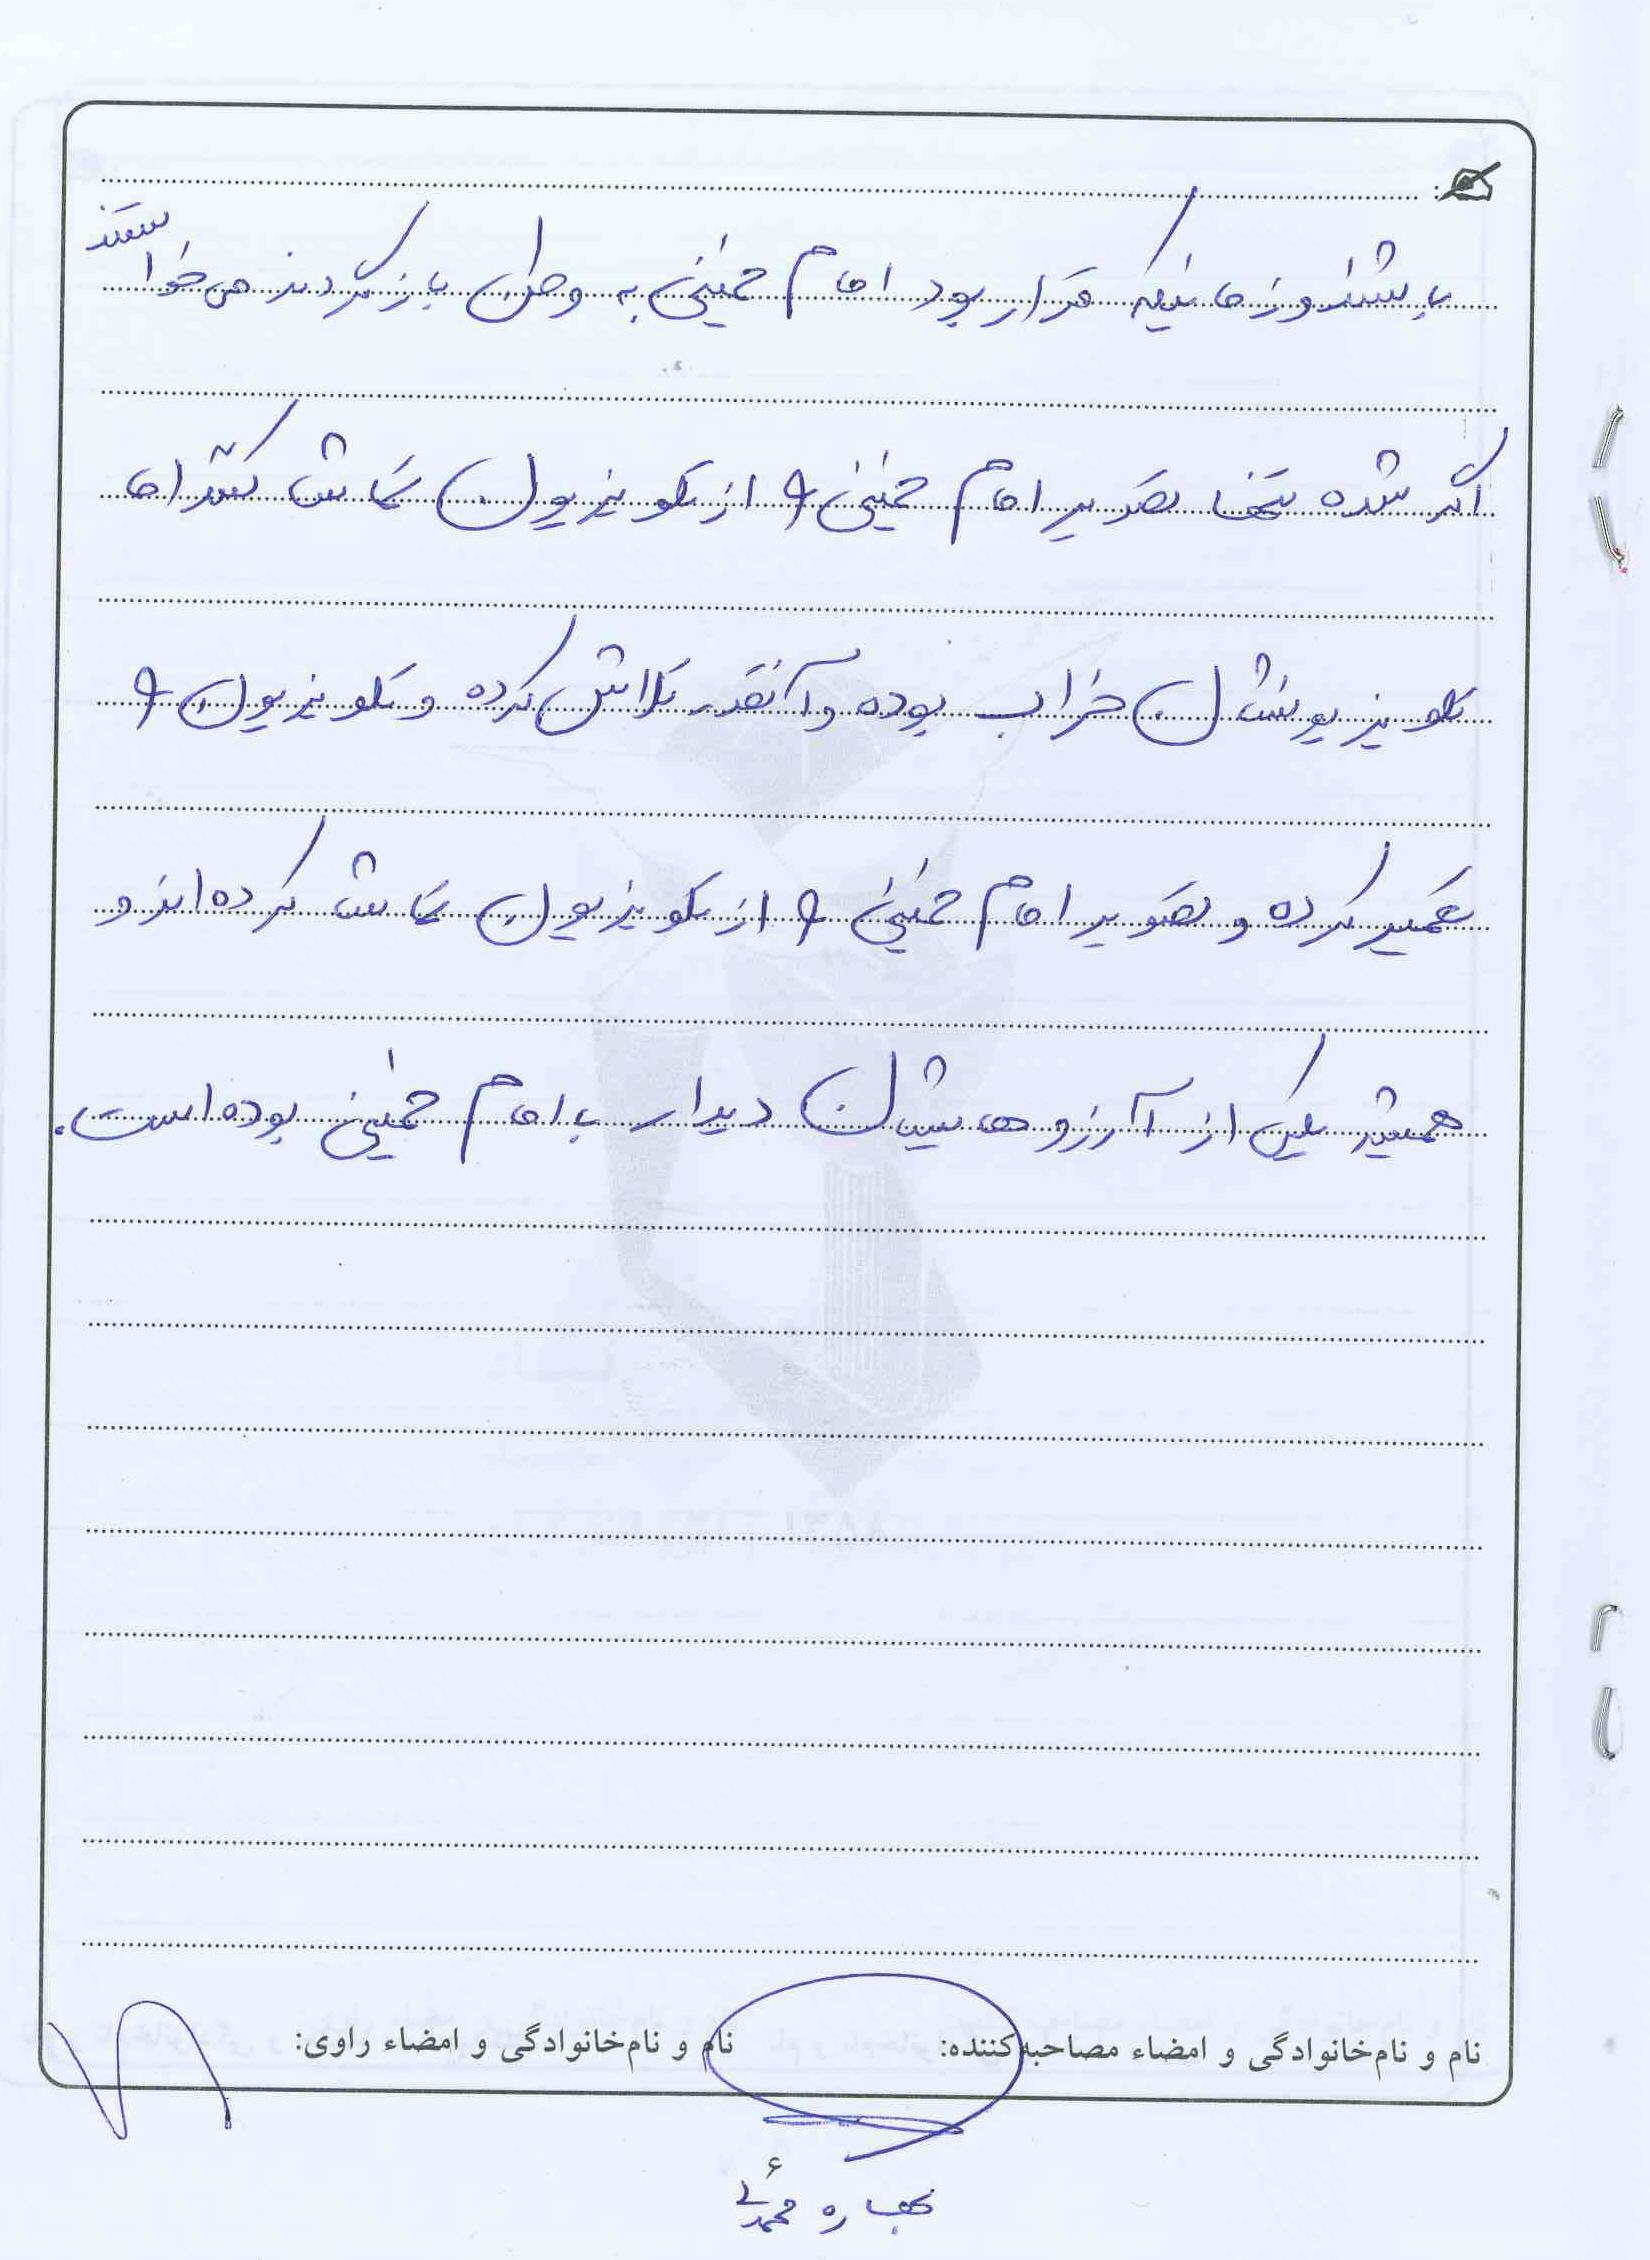 باشند و زمانیکه قرار بود امام خمینی به وطن بازگردند می‌خواستند
اگر شده تنها تصویر امام خمینی را از تلویزیون تماشا کنند اما
تلویزیونشان خراب بوده و آنقدر تلاش کرده و تلویزیون را
تعمیر کرده و تصویر امام خمینی را از تلویزیون تماشا کرده‌اند و
همیشه یکی از آرزوهایشان دیدار با امام خمینی بوده است.
نام و نام‌خانوادگی و امضاء مصاحبه‌کننده: نام و نام‌خانوادگی و امضاء راوی:
۶
محمدی